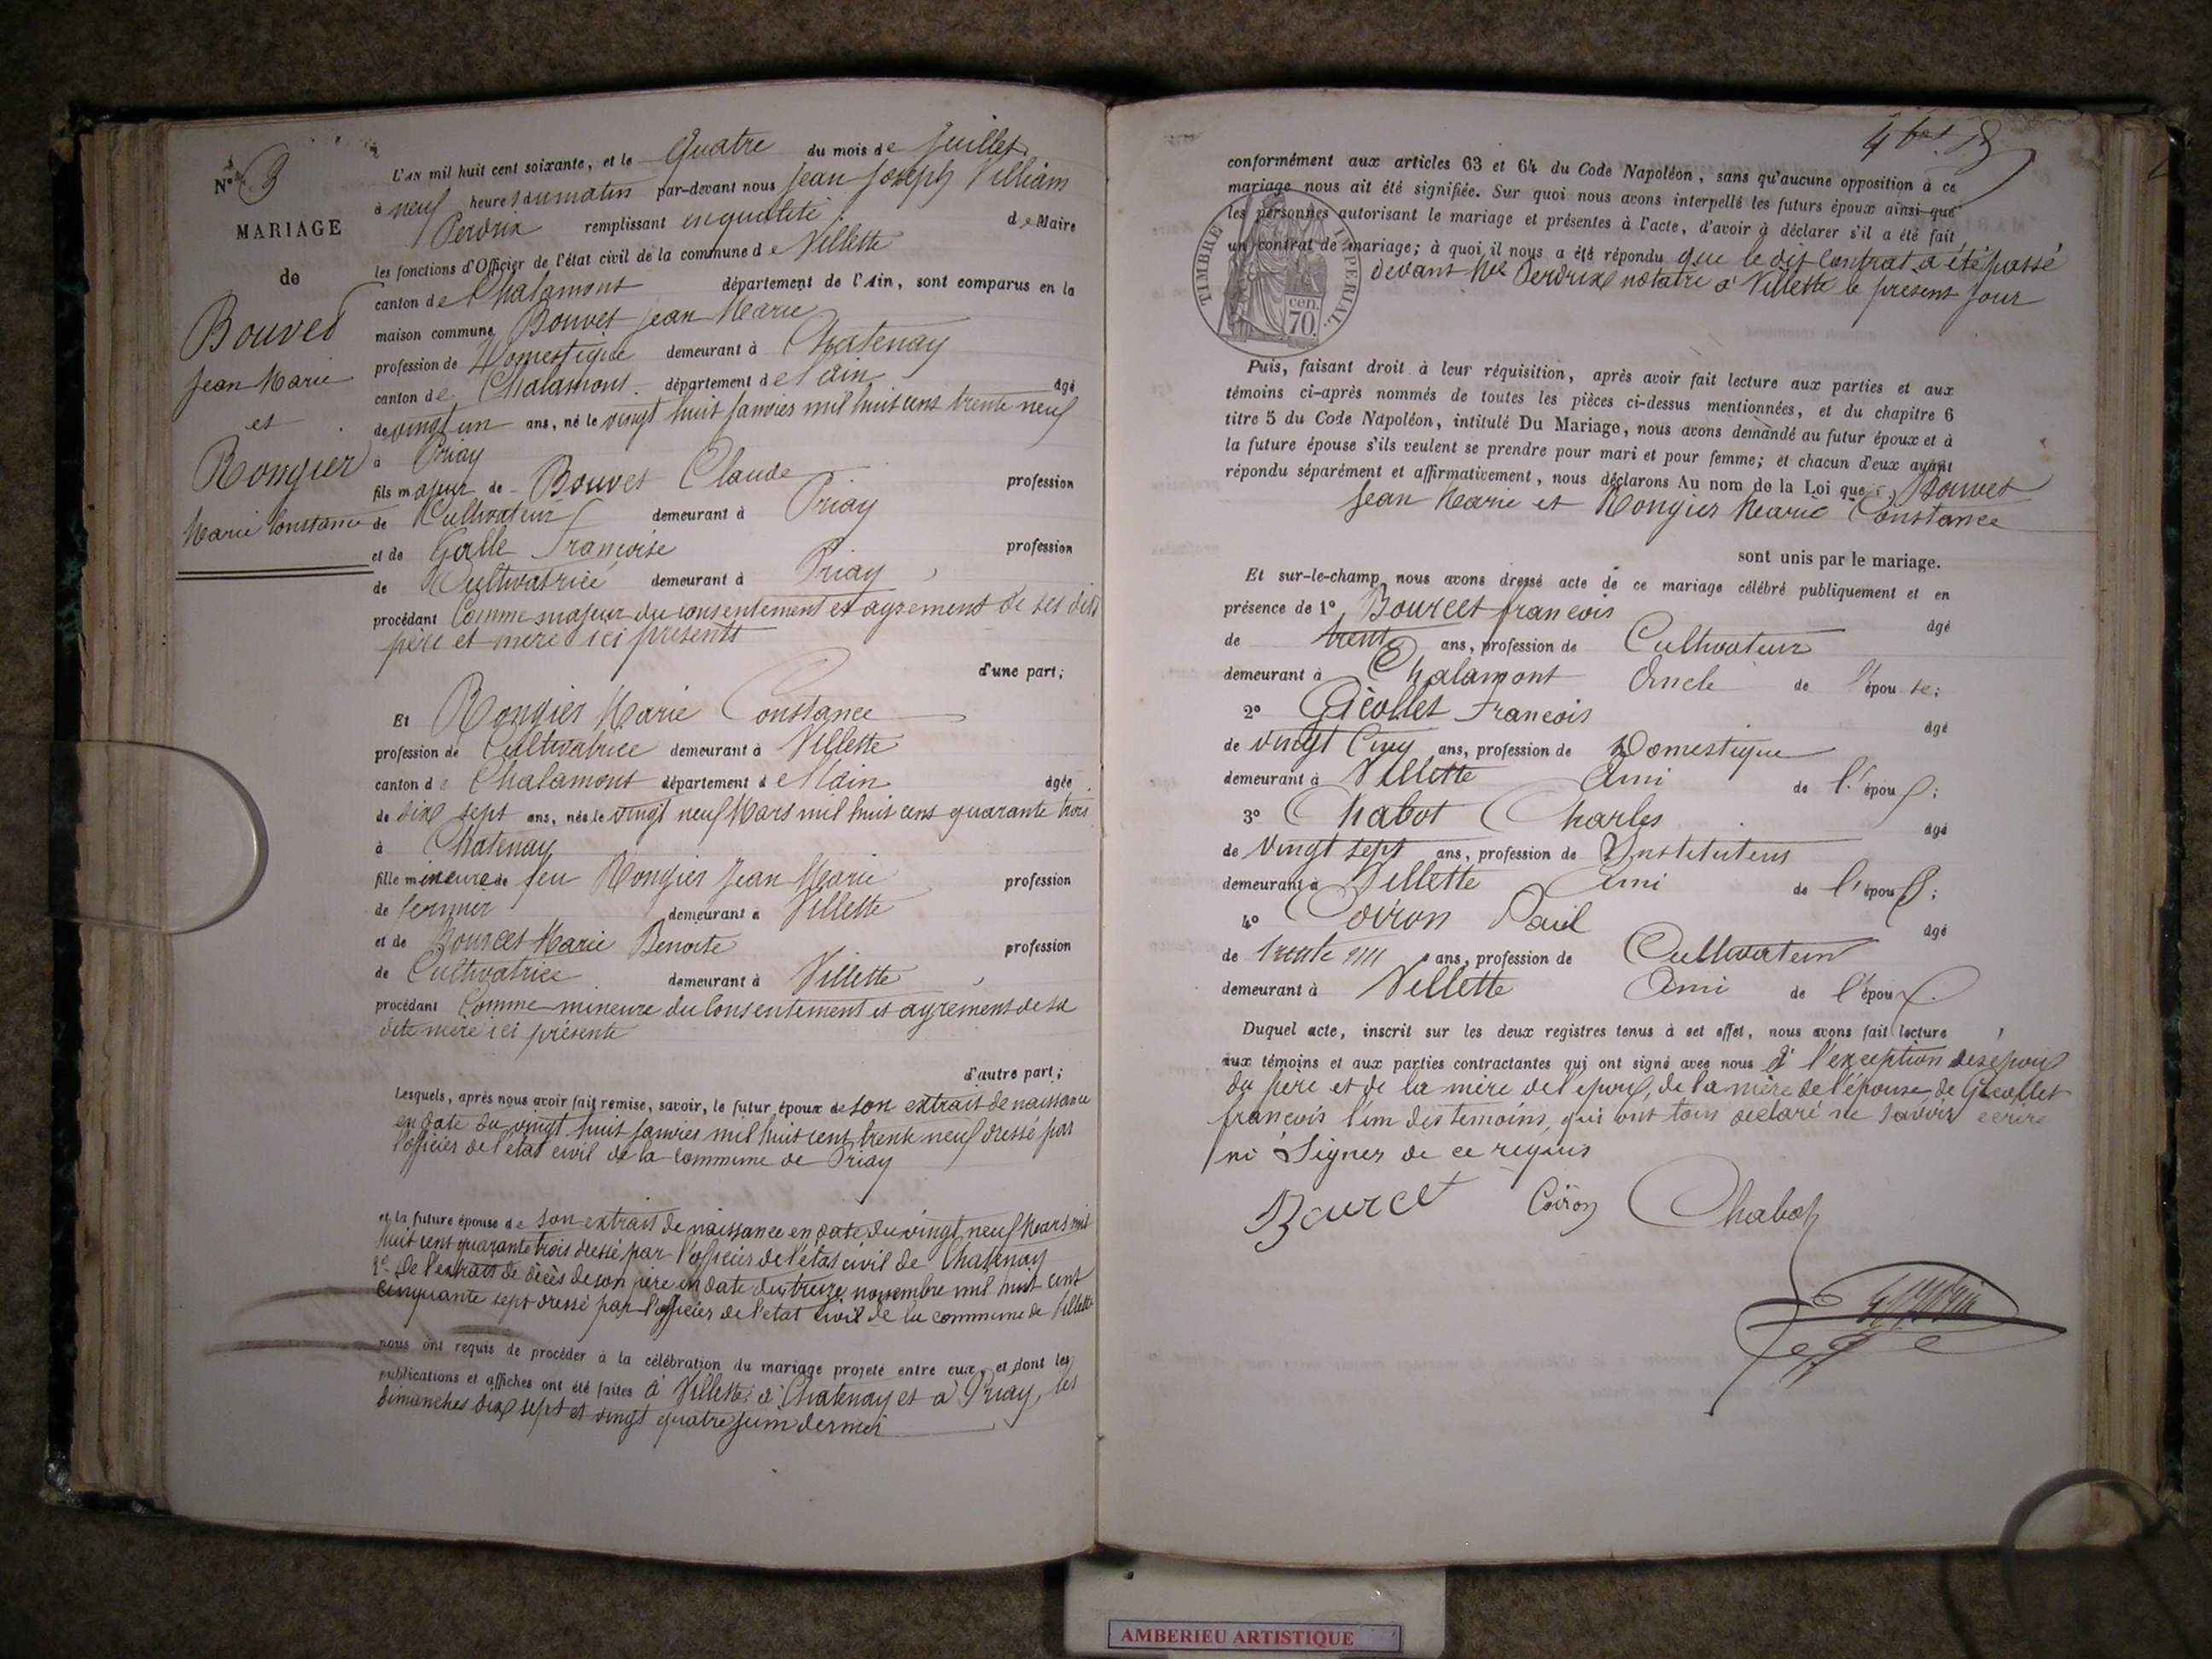 N° 3
MARIAGE
de
Bouvet
Jean Marie
et
Rongier
Marie Constance
L'AN mil huit cent soixante, et le Quatre du mois de Juillet
à neuf heures du matin par-devant nous Jean Joseph Villiam
Perdrix remplissant en qualité de Maire
les fonctions d'Officier de l'état civil de la commune de Villette
canton de Chalamont département de l'Ain, sont comparus en la
maison commune Bouvet Jean Marie
profession de Domestique demeurant à Chatenay
canton de Chalamont département de l'ain âgé
de vingt un ans, né le vingt huit Janvier mil huit cent trente neuf
à Priay
fils majeur de Bouvet Claude profession
de Cultivateur demeurant à Priay
et de Galle Françoise profession
de Cultivatrice demeurant à Priay,
procédant Comme majeur du consentement et agrement de ses dits
père et mère ici présents
d'une part;
Et Rongier Marie Constance
profession de Cultivatrice demeurant à Villette
canton de Chalamont département de l'ain âgée
de dix sept ans, née le vingt neuf Mars mil huit cent quarante trois
à Chatenay
fille mineure de feu Rongier Jean Marie profession
de fermier demeurant à Villette
et de Bourcet Marie Benoite profession
de Cultivatrice demeurant à Villette,
procédant Comme mineure du Consentement et agrement de sa
dite mère ici présente
d'autre part;
Lesquels, après nous avoir fait remise, savoir, le futur époux de son extrait de naissance
en date du vingt huit Janvier mil huit cent trente neuf dressé par
l'officier de l'état civil de la commune de Priay
et la future épouse de son extrait de naissance en date du vingt neuf Mars mil
huit cent quarante trois dressé par l'officier de l'état civil de Chatenay
2° De l'extrait de décès de son père en date du treize novembre mil huit cent
cinquante sept dressé par l'officier de l'état civil de la commune de Villette
nous ont requis de procéder à la célébration du mariage projeté entre eux, et dont les
publications et affiches ont été faites à Villette, à Chatenay et à Priay, les
dimanches dix sept et vingt quatre juin dernier
conformément aux articles 63 et 64 du Code Napoléon, sans qu'aucune opposition à ce
mariage nous ait été signifiée. Sur quoi nous avons interpellé les futurs époux ainsi que
les personnes autorisant le mariage et présentes à l'acte, d'avoir à déclarer s'il a été fait
un contrat de mariage; à quoi il nous a été répondu que le dit Contrat a été passé
devant Me Perdrix notaire à Villette le présent jour
TIMBRE IMPERIAL.
70 cen.
Puis, faisant droit à leur réquisition, après avoir fait lecture aux parties et aux
témoins ci-après nommés de toutes les pièces ci-dessus mentionnées, et du chapitre 6
titre 5 du Code Napoléon, intitulé Du Mariage, nous avons demandé au futur époux et à
la future épouse s'ils veulent se prendre pour mari et pour femme; et chacun d'eux ayant
répondu séparément et affirmativement, nous déclarons Au nom de la Loi que Bouvet
Jean Marie et Rongier Marie Constance
sont unis par le mariage.
Et sur-le-champ nous avons dressé acte de ce mariage célébré publiquement et en
présence de 1° Bourcet françois âgé
de trente ans, profession de Cultivateur
demeurant à Chalamont Oncle de l'épouse;
2° Gicollet francois âgé
de vingt Cinq ans, profession de Domestique
demeurant à Villette Ami de l'époux;
3° Chabot Charles âgé
de vingt sept ans, profession de Instituteur
demeurant à Villette Ami de l'époux;
4° Coiron Paul âgé
de trente ans, profession de Cultivateur
demeurant à Villette Ami de l'époux.
Duquel acte, inscrit sur les deux registres tenus à cet effet, nous avons fait lecture
aux témoins et aux parties contractantes qui ont signé avec nous à l'exception des époux
du père et de la mère de l'époux, de la mère de l'épouse, de Gicollet
francois l'un des temoins, qui ont tous declaré ne savoir ecrire
ni Signer de ce requis
Bourcet Coiron Chabot
AMBERIEU ARTISTIQUE